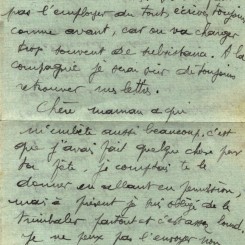 pas l'employer du tout, écrivez toujours
comme avant, car on va changer
trop souvent de subsistance. A la
compagnie je serai sûr de toujours
retrouver vos lettres.
Chère maman ce qui
m'embête aussi beaucoup, c'est
que j'avais fait quelque chose pour
ta fête. je comptais te le
donner en allant en permission,
mais à présent je suis obligé de le
trimbaler partout et c'est assez lourd
je ne peux pas l'envoyer non